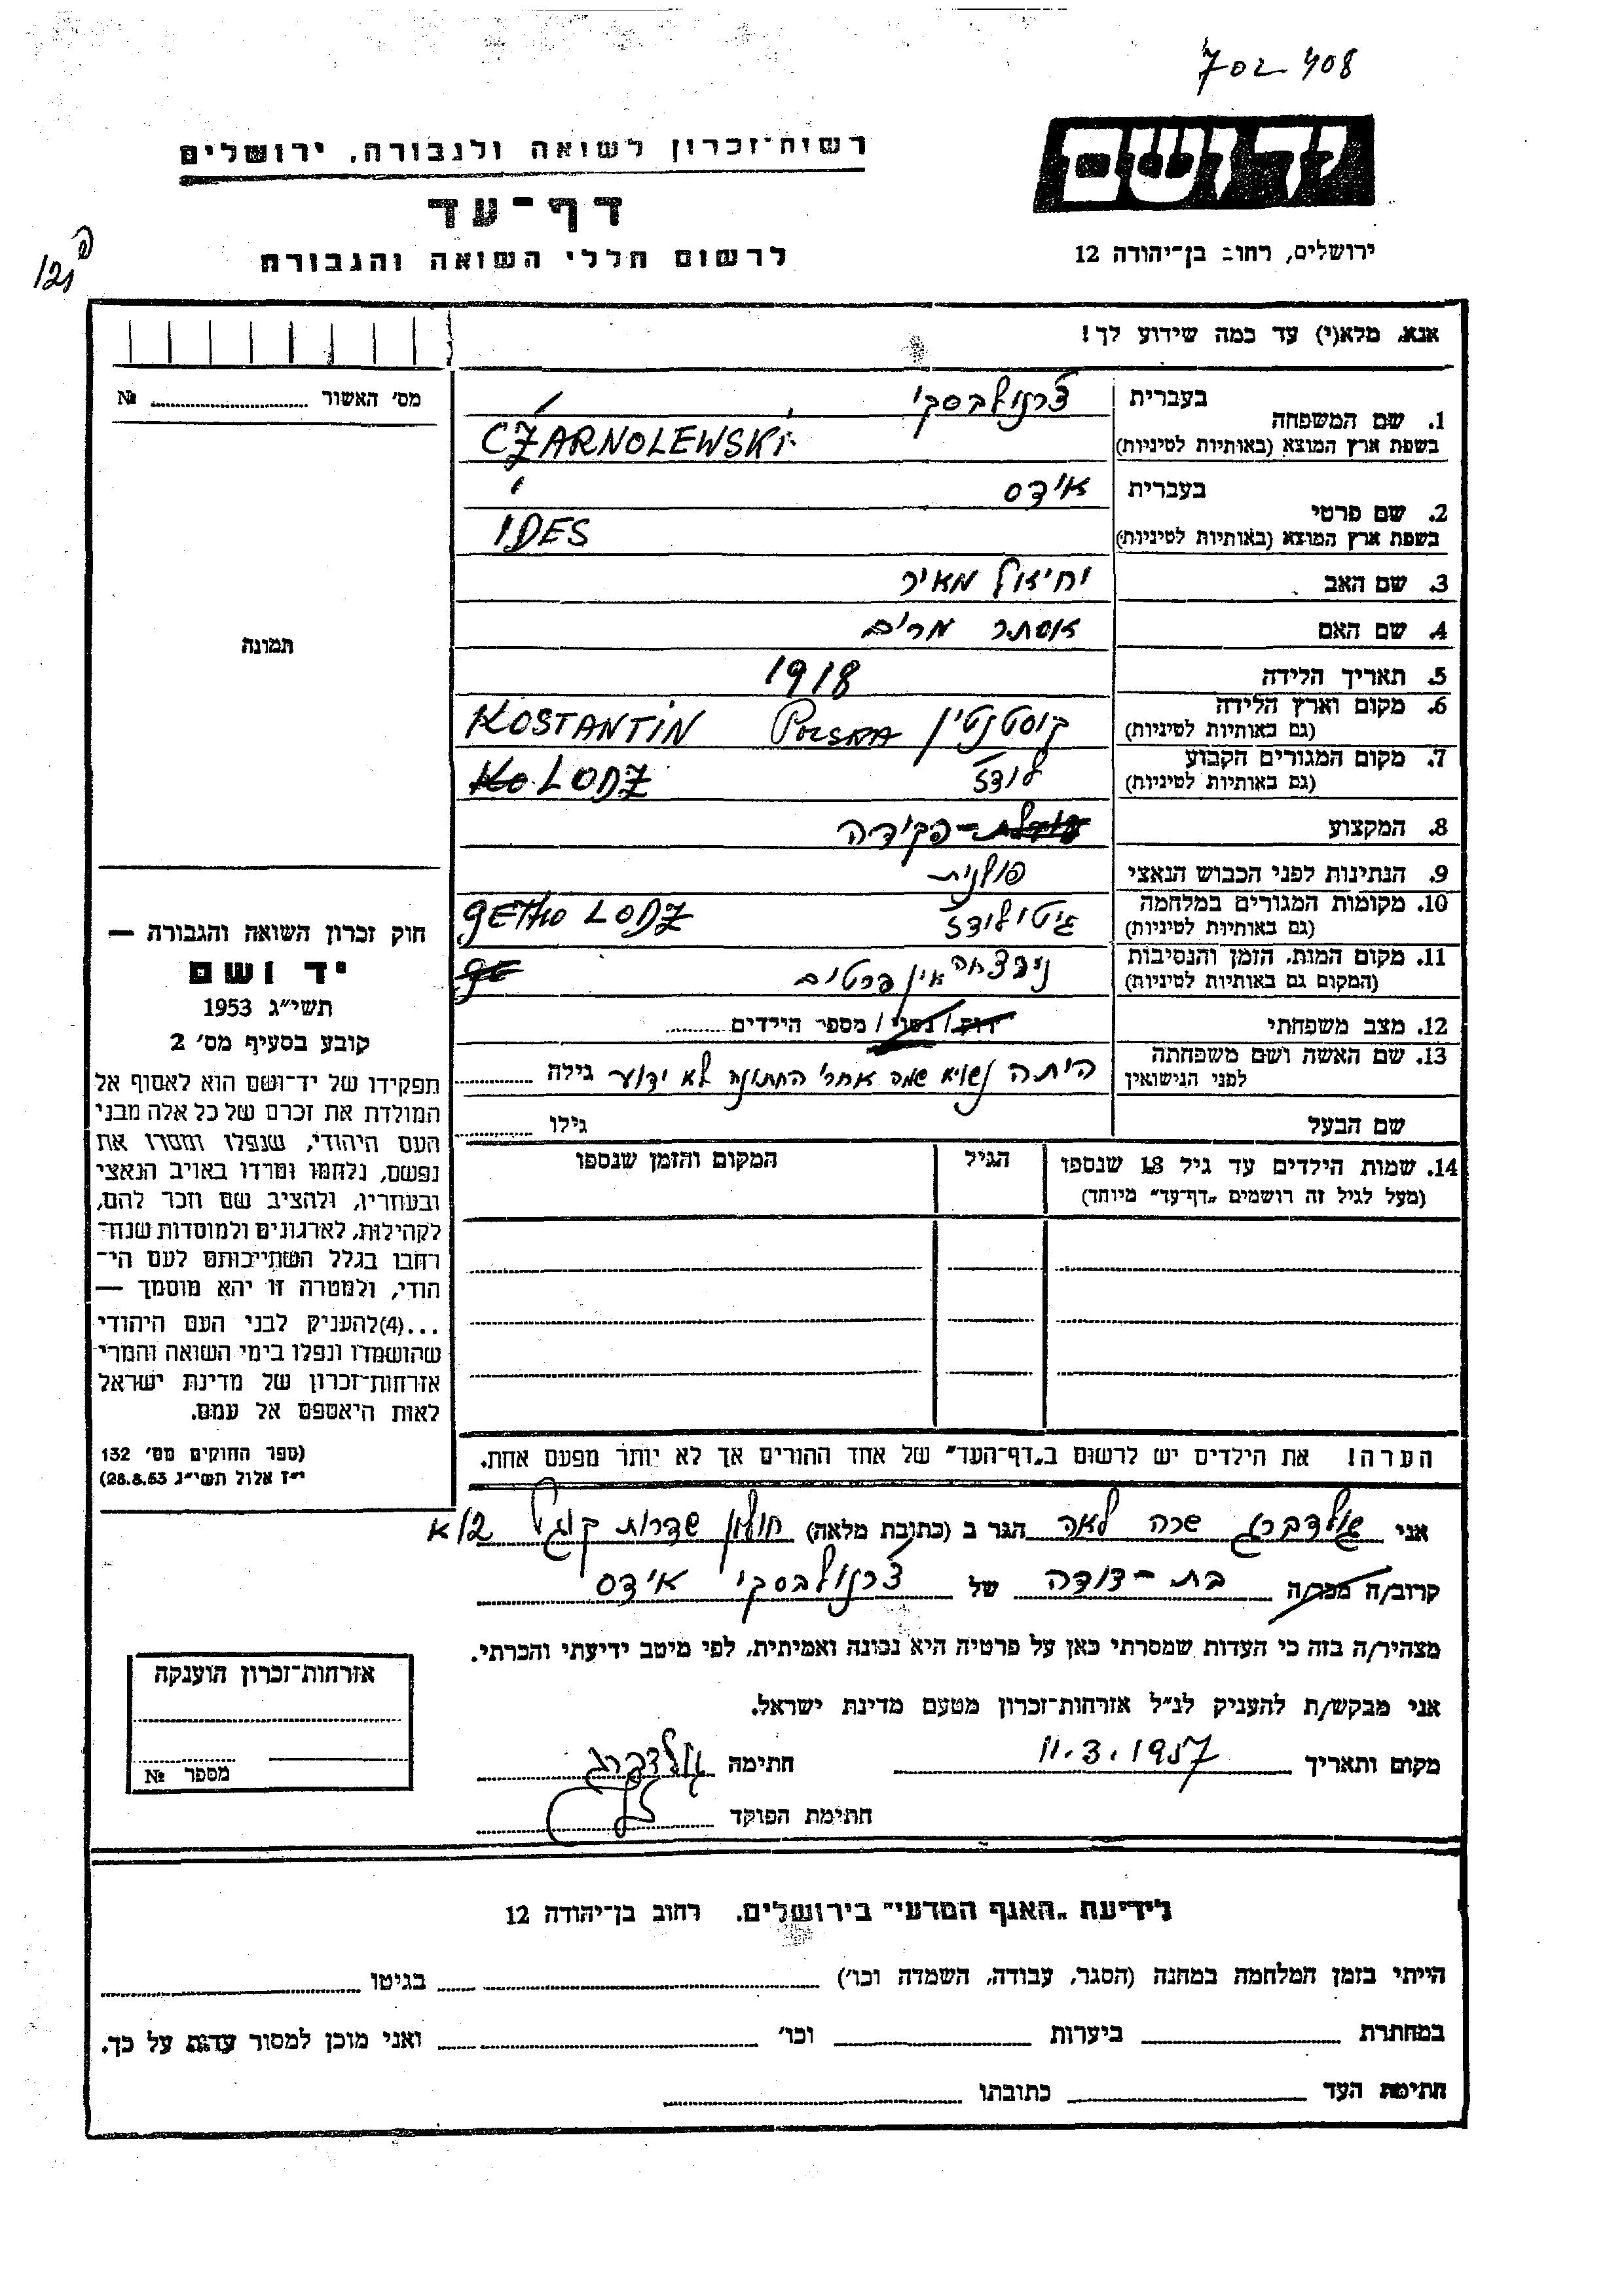 702 408
רשות־זכרון לשואה ולגבורה, ירושלים
יד ושם
דף־עד
ירושלים, רחוב בן־יהודה 12
לרשום חללי השואה והגבורה
אנא, מלא(י) עד כמה שידוע לך!
מס׳ האשור № 
1. שם המשפחה בעברית צ׳רנולבסקי
בשפת ארץ המוצא (באותיות לטיניות) CZARNOLEWSKI
2. שם פרטי בעברית אידס
בשפת ארץ המוצא (באותיות לטיניות) IDES
3. שם האב יחיאל מאיר
4. שם האם אסתר מרים
תמונה
5. תאריך הלידה 1918
6. מקום וארץ הלידה (גם באותיות לטיניות) קוסטנטין POLSKA KOSTANTIN
7. מקום המגורים הקבוע (גם באותיות לטיניות) לודז LODZ
8. המקצוע פקידה
9. הנתינות לפני הכבוש הנאצי פולנית
10. מקומות המגורים במלחמה (גם באותיות לטיניות) גיטו לודז GETHO LODZ
11. מקום המות, הזמן והנסיבות (המקום גם באותיות לטיניות) נרצחה אין פרטים
12. מצב משפחתי רוק / נשוי / מספר הילדים
13. שם האשה ושם משפחתה לפני הנישואין היתה נשויא שמה אחרי החתונה לא ידוע גילה
שם הבעל גילו
14. שמות הילדים עד גיל 18 שנספו (מעל לגיל זה רושמים „דף־עד” מיוחד) הגיל המקום והזמן שנספו
חוק זכרון השואה והגבורה —
יד ושם
תשי״ג 1953
קובע בסעיף מס׳ 2
תפקידו של יד־ושם הוא לאסוף אל
המולדת את זכרם של כל אלה מבני
העם היהודי, שנפלו ומסרו את
נפשם, נלחמו ומרדו באויב הנאצי
ובעוזריו, ולהציב שם וזכר להם,
לקהילות, לארגונים ולמוסדות שנח־
רבו בגלל השתייכותם לעם הי־
הודי, ולמטרה זו יהא מוסמך —
...(4)להעניק לבני העם היהודי
שהושמדו ונפלו בימי השואה והמרי
אזרחות־זכרון של מדינת ישראל
לאות היאספם אל עמם.
(ספר החוקים מס׳ 132
י״ז אלול תשי״ג 28.8.53)
הערה! את הילדים יש לרשום ב„דף־העד” של אחד ההורים אך לא יותר מפעם אחת.
אני גולדברג שרה לאה הגר ב (כתובת מלאה) חולון שדרות קוגל 12א
קרוב/ה מכר/ה בת-דודה של צ׳רנולבסקי אידס
מצהיר/ה בזה כי העדות שמסרתי כאן על פרטיה היא נכונה ואמיתית, לפי מיטב ידיעתי והכרתי.
אני מבקש/ת להעניק לנ״ל אזרחות־זכרון מטעם מדינת ישראל.
מקום ותאריך 11.3.1957 חתימה גולדברג
חתימת הפוקד
אזרחות־זכרון הוענקה
מספר №
לידיעת „האגף המדעי” בירושלים, רחוב בן־יהודה 12
הייתי בזמן המלחמה במחנה (הסגר, עבודה, השמדה וכו׳) בגיטו
במחתרת ביערות וכו׳ ואני מוכן למסור עדות על כך.
חתימת העד כתובתו